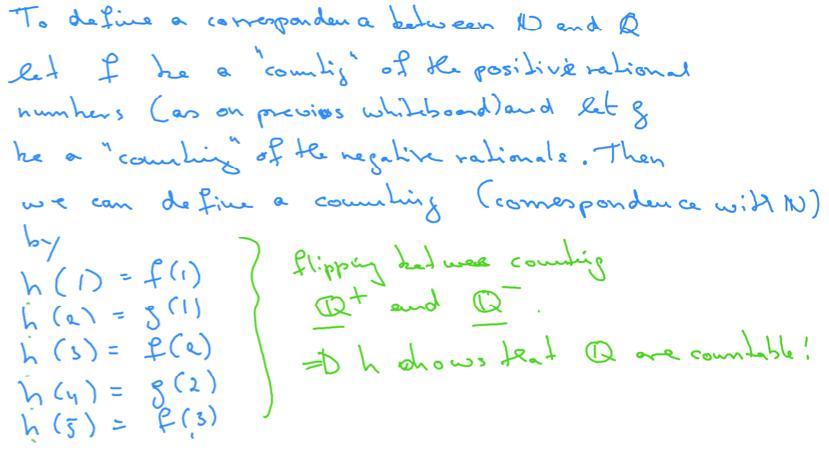 To define a correspondence between ℕ and ℚ
let f be a "counting" of the positive rational
numbers (as on previous whiteboard) and let g
be a "counting" of the negative rationals. Then
we can define a counting (correspondence with ℕ)
by
h(1) = f(1)
h(2) = g(1)
h(3) = f(2)
h(4) = g(2)
h(5) = f(3)
flipping between counting
ℚ⁺ and ℚ⁻.
⇒ h shows that ℚ are countable!